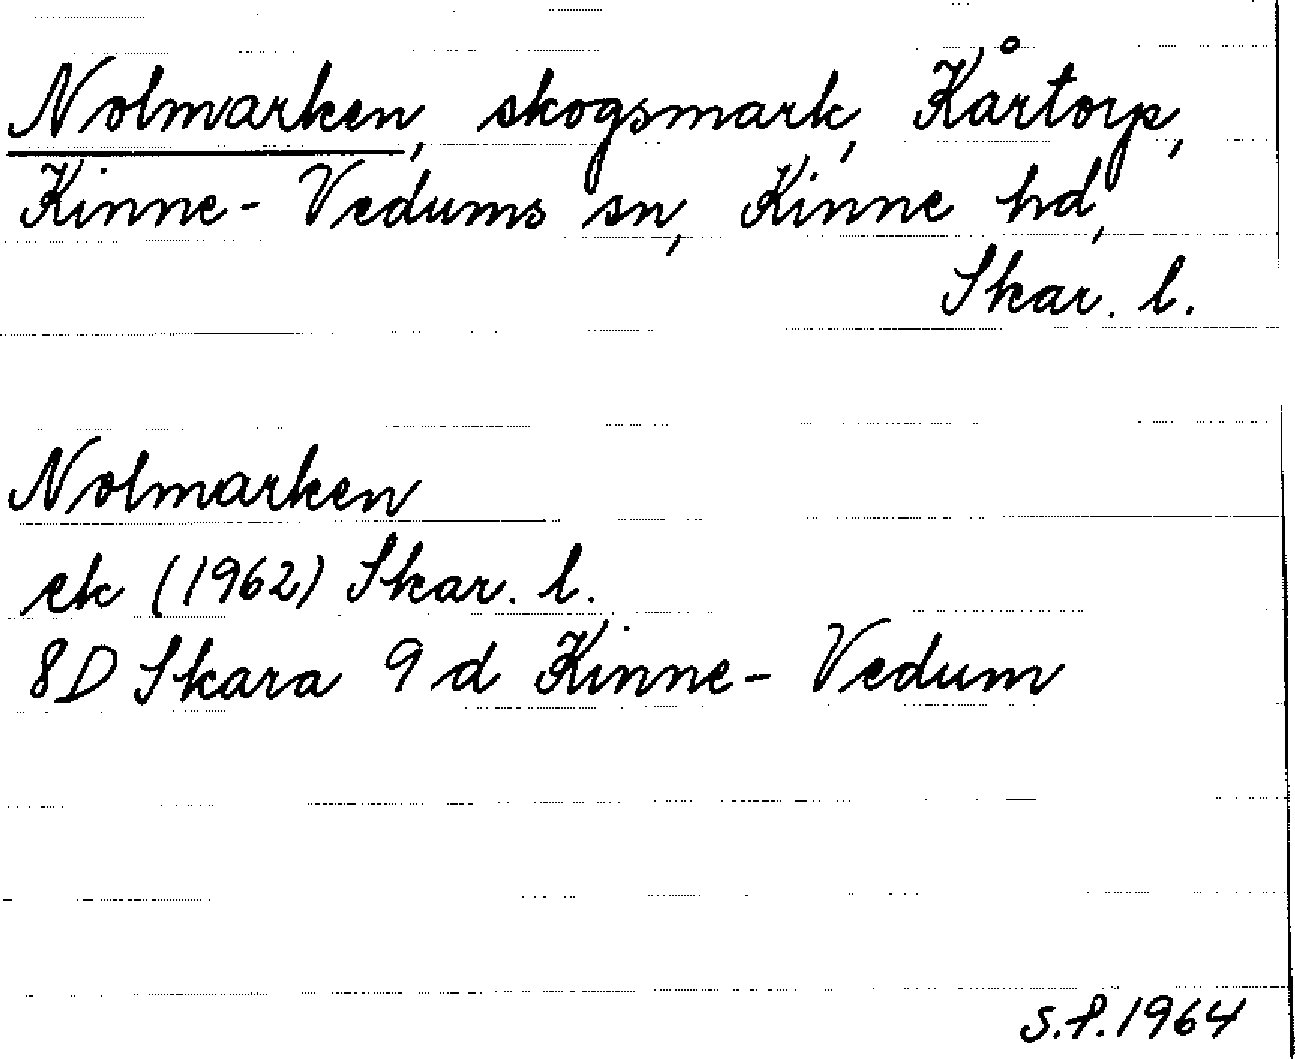 Nolmarken, skogsmark, Kårtorp,
Kinne-Vedums sn, Kinne hd,
Skar. l.
Nolmarken
ek (1962) Skar. l.
8D Skara 9 d Kinne-Vedum
S.F. 1964